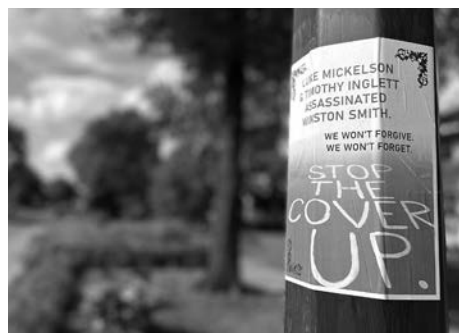 LUKE MICKELSON
& TIMOTHY INGLETT
ASSASSINATED
WINSTON SMITH.
WE WON'T FORGIVE.
WE WON'T FORGET.
STOP
THE
COVER
UP.